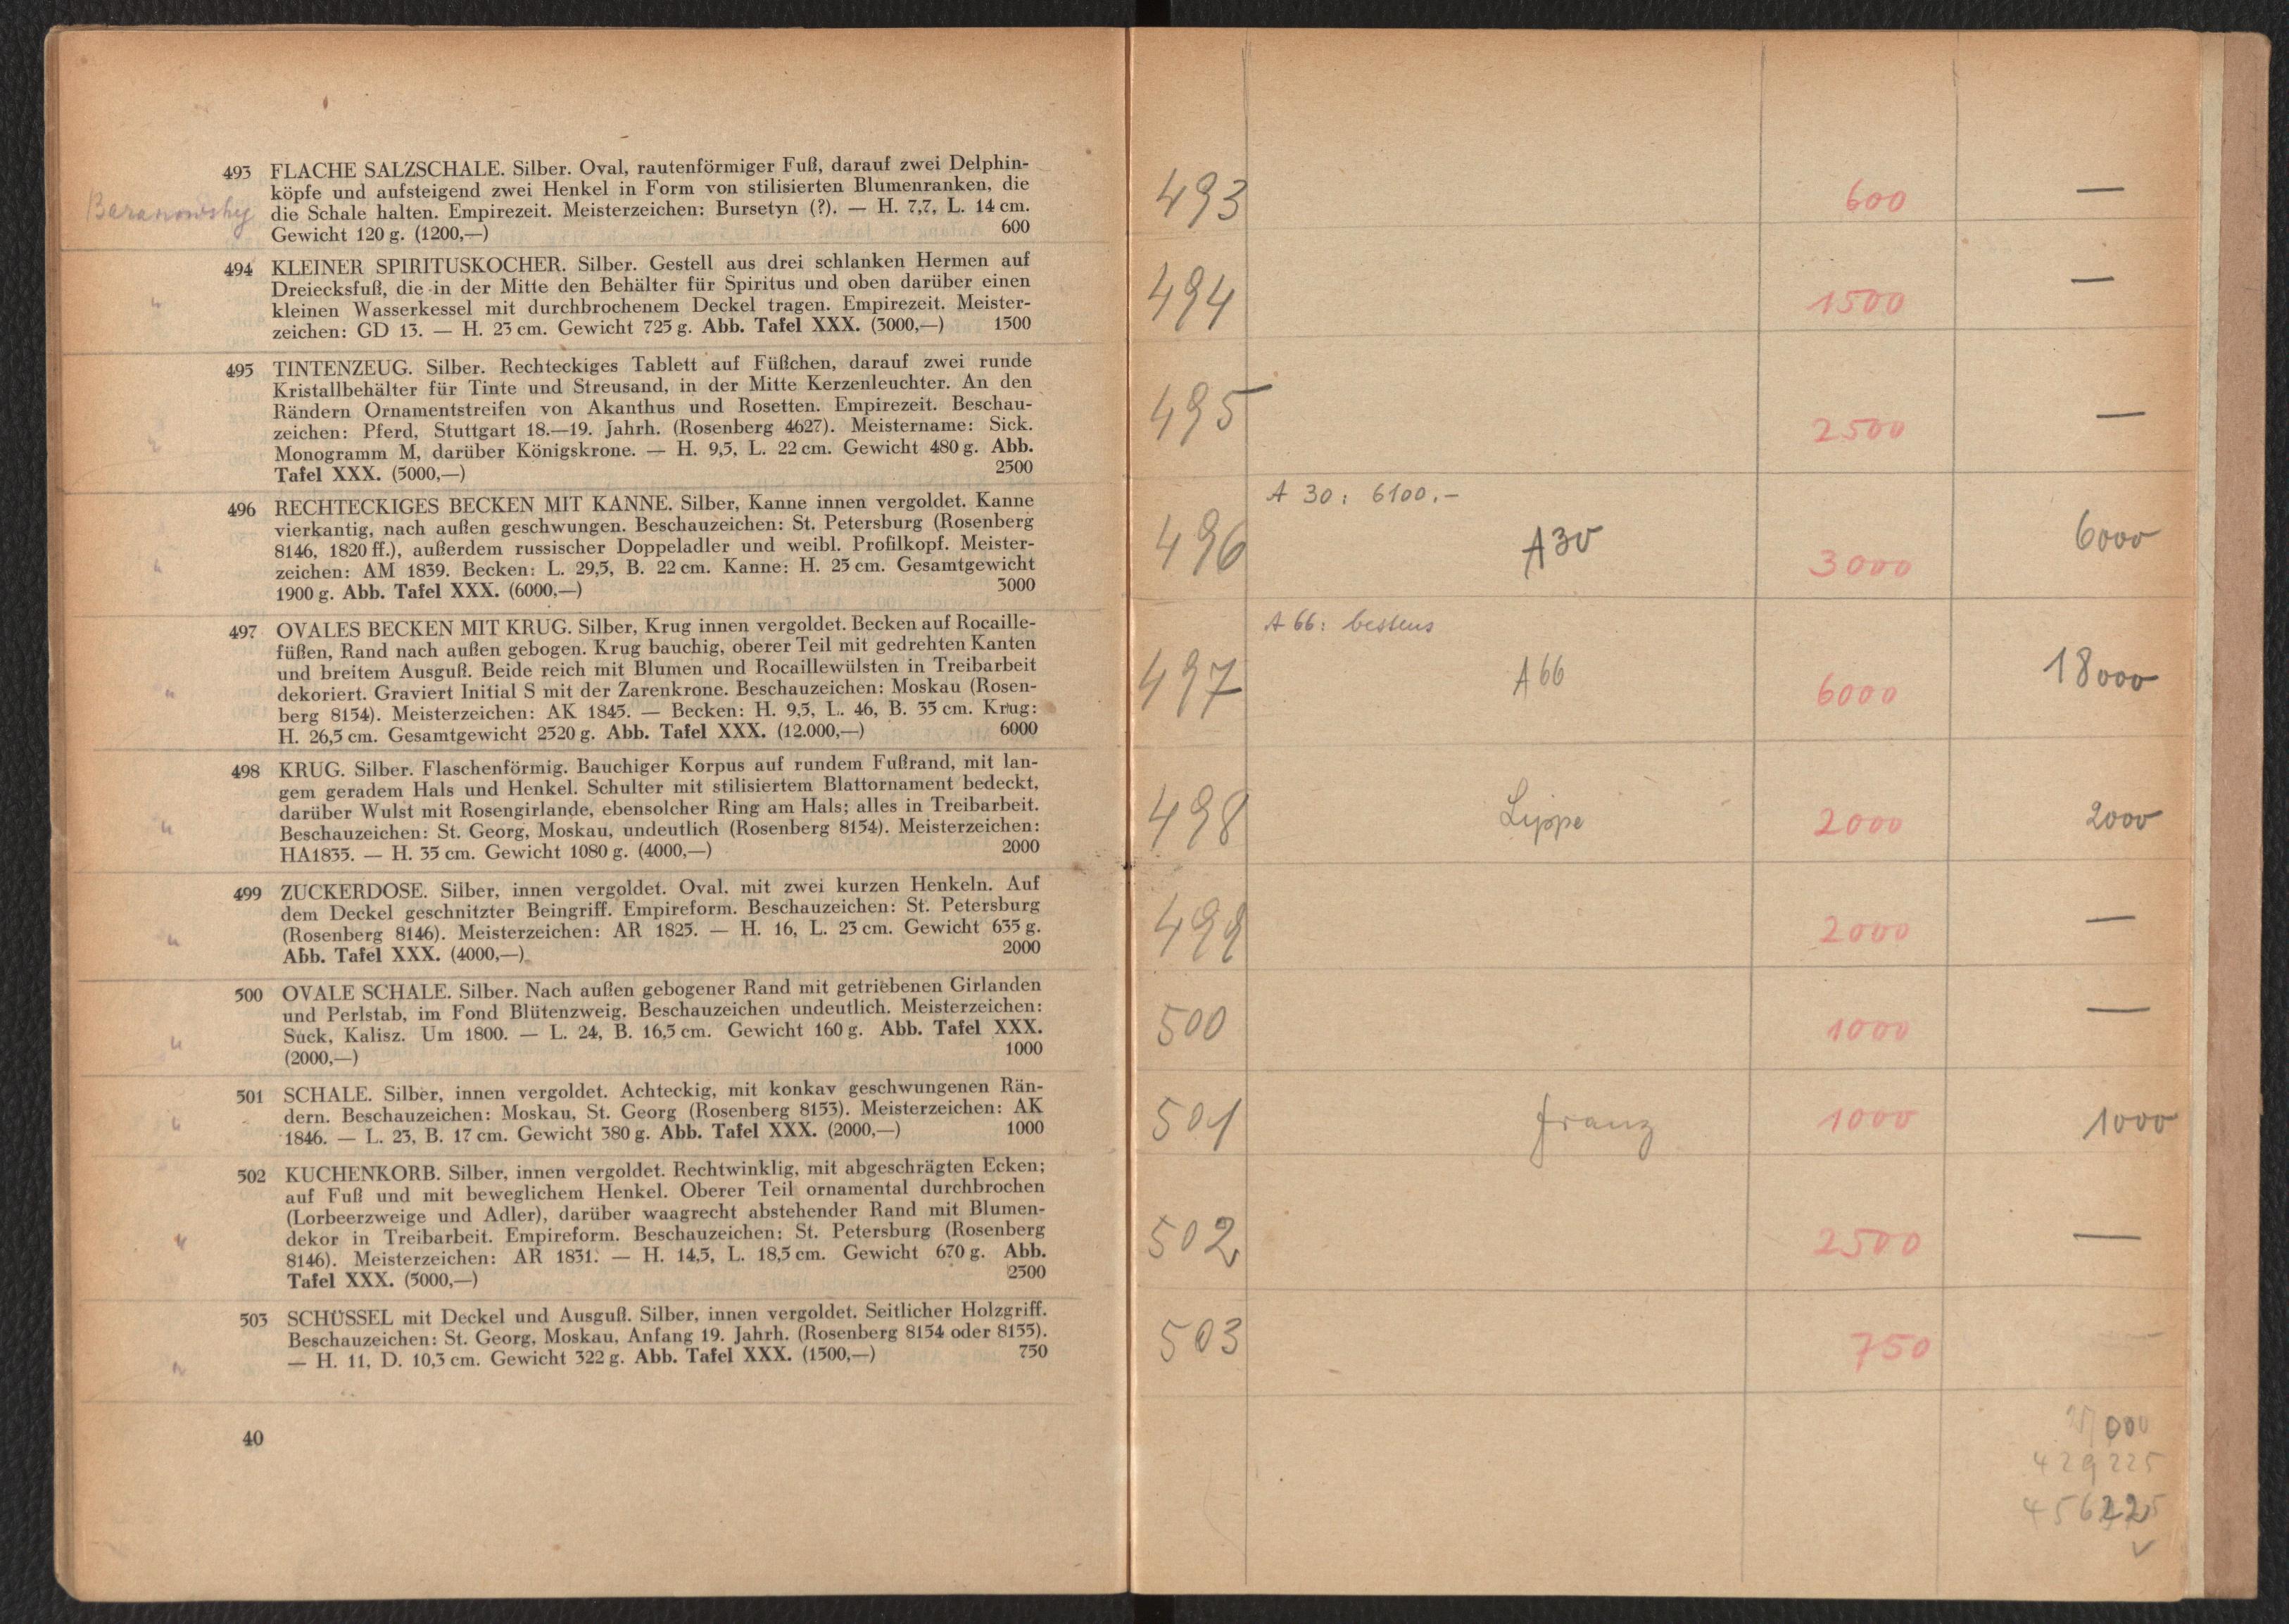 493 FLACHE SALZSCHALE. Silber. Oval, rautenförmiger Fuß, darauf zwei Delphin-
köpfe und aufsteigend zwei Henkel in Form von stilisierten Blumenranken, die
Baranowsky die Schale halten. Empirezeit. Meisterzeichen: Bursetyn (?). — H. 7,7, L. 14 cm.
Gewicht 120 g. (1200,—) 600
494 KLEINER SPIRITUSKOCHER. Silber. Gestell aus drei schlanken Hermen auf
Dreiecksfuß, die in der Mitte den Behälter für Spiritus und oben darüber einen
" kleinen Wasserkessel mit durchbrochenem Deckel tragen. Empirezeit. Meister-
zeichen: GD 13. — H. 23 cm. Gewicht 725 g. Abb. Tafel XXX. (3000,—) 1500
495 TINTENZEUG. Silber. Rechteckiges Tablett auf Füßchen, darauf zwei runde
Kristallbehälter für Tinte und Streusand, in der Mitte Kerzenleuchter. An den
Rändern Ornamentstreifen von Akanthus und Rosetten. Empirezeit. Beschau-
" zeichen: Pferd, Stuttgart 18.—19. Jahrh. (Rosenberg 4627). Meistername: Sick.
Monogramm M, darüber Königskrone. — H. 9,5, L. 22 cm. Gewicht 480 g. Abb.
Tafel XXX. (5000,—) 2500
496 RECHTECKIGES BECKEN MIT KANNE. Silber, Kanne innen vergoldet. Kanne
vierkantig, nach außen geschwungen. Beschauzeichen: St. Petersburg (Rosenberg
8146, 1820 ff.), außerdem russischer Doppeladler und weibl. Profilkopf. Meister-
" zeichen: AM 1839. Becken: L. 29,5, B. 22 cm. Kanne: H. 25 cm. Gesamtgewicht
1900 g. Abb. Tafel XXX. (6000,—) 3000
497 OVALES BECKEN MIT KRUG. Silber, Krug innen vergoldet. Becken auf Rocaille-
füßen, Rand nach außen gebogen. Krug bauchig, oberer Teil mit gedrehten Kanten
und breitem Ausguß. Beide reich mit Blumen und Rocaillewülsten in Treibarbeit
" dekoriert. Graviert Initial S mit der Zarenkrone. Beschauzeichen: Moskau (Rosen-
berg 8154). Meisterzeichen: AK 1845. — Becken: H. 9,5, L. 46, B. 35 cm. Krug:
H. 26,5 cm. Gesamtgewicht 2520 g. Abb. Tafel XXX. (12.000,—) 6000
498 KRUG. Silber. Flaschenförmig. Bauchiger Korpus auf rundem Fußrand, mit lan-
gem geradem Hals und Henkel. Schulter mit stilisiertem Blattornament bedeckt,
darüber Wulst mit Rosengirlande, ebensolcher Ring am Hals; alles in Treibarbeit.
" Beschauzeichen: St. Georg, Moskau, undeutlich (Rosenberg 8154). Meisterzeichen:
HA1835. — H. 35 cm. Gewicht 1080 g. (4000,—) 2000
499 ZUCKERDOSE. Silber, innen vergoldet. Oval. mit zwei kurzen Henkeln. Auf
dem Deckel geschnitzter Beingriff. Empireform. Beschauzeichen: St. Petersburg
" (Rosenberg 8146). Meisterzeichen: AR 1825. — H. 16, L. 23 cm. Gewicht 635 g.
Abb. Tafel XXX. (4000,—) 2000
500 OVALE SCHALE. Silber. Nach außen gebogener Rand mit getriebenen Girlanden
und Perlstab, im Fond Blütenzweig. Beschauzeichen undeutlich. Meisterzeichen:
" Suck, Kalisz. Um 1800. — L. 24, B. 16,5 cm. Gewicht 160 g. Abb. Tafel XXX.
(2000,—) 1000
501 SCHALE. Silber, innen vergoldet. Achteckig, mit konkav geschwungenen Rän-
" dern. Beschauzeichen: Moskau, St. Georg (Rosenberg 8153). Meisterzeichen: AK
1846. — L. 23, B. 17 cm. Gewicht 380 g. Abb. Tafel XXX. (2000,—) 1000
502 KUCHENKORB. Silber, innen vergoldet. Rechtwinklig, mit abgeschrägten Ecken;
auf Fuß und mit beweglichem Henkel. Oberer Teil ornamental durchbrochen
(Lorbeerzweige und Adler), darüber waagrecht abstehender Rand mit Blumen-
" dekor in Treibarbeit. Empireform. Beschauzeichen: St. Petersburg (Rosenberg
8146). Meisterzeichen: AR 1831. — H. 14,5, L. 18,5 cm. Gewicht 670 g. Abb.
Tafel XXX. (5000,—) 2500
503 SCHÜSSEL mit Deckel und Ausguß. Silber, innen vergoldet. Seitlicher Holzgriff.
Beschauzeichen: St. Georg, Moskau, Anfang 19. Jahrh. (Rosenberg 8154 oder 8155).
" — H. 11, D. 10,3 cm. Gewicht 322 g. Abb. Tafel XXX. (1500,—) 750
40
493 600 —
494 1500 —
495 2500 —
A 30: 6100.-
496 A30 3000 6000
A 66: bestens
497 A66 6000 18000
498 Lippe 2000 2000
499 2000 —
500 1000 —
501 Franz 1000 1000
502 2500 —
503 750 —
27000
429225
456225